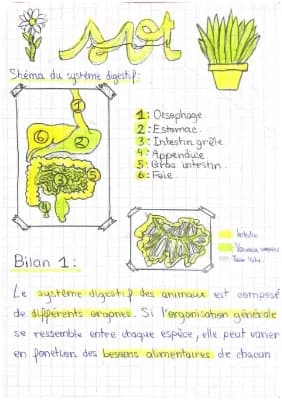 svt
Shéma du système digestif:
1: Oesophage
2: Estomac
3: Intestin grêle
4: Appendice
5: Gros intestin
6: Foie
1
2
6
3
5
4
Intestin
Bilan 1:
Le système digestif des animaux est composé
de différents organes. Si l'organisation générale
se ressemble entre chaque espèce, elle peut varier
en fonction des besoins alimentaires de chacun.